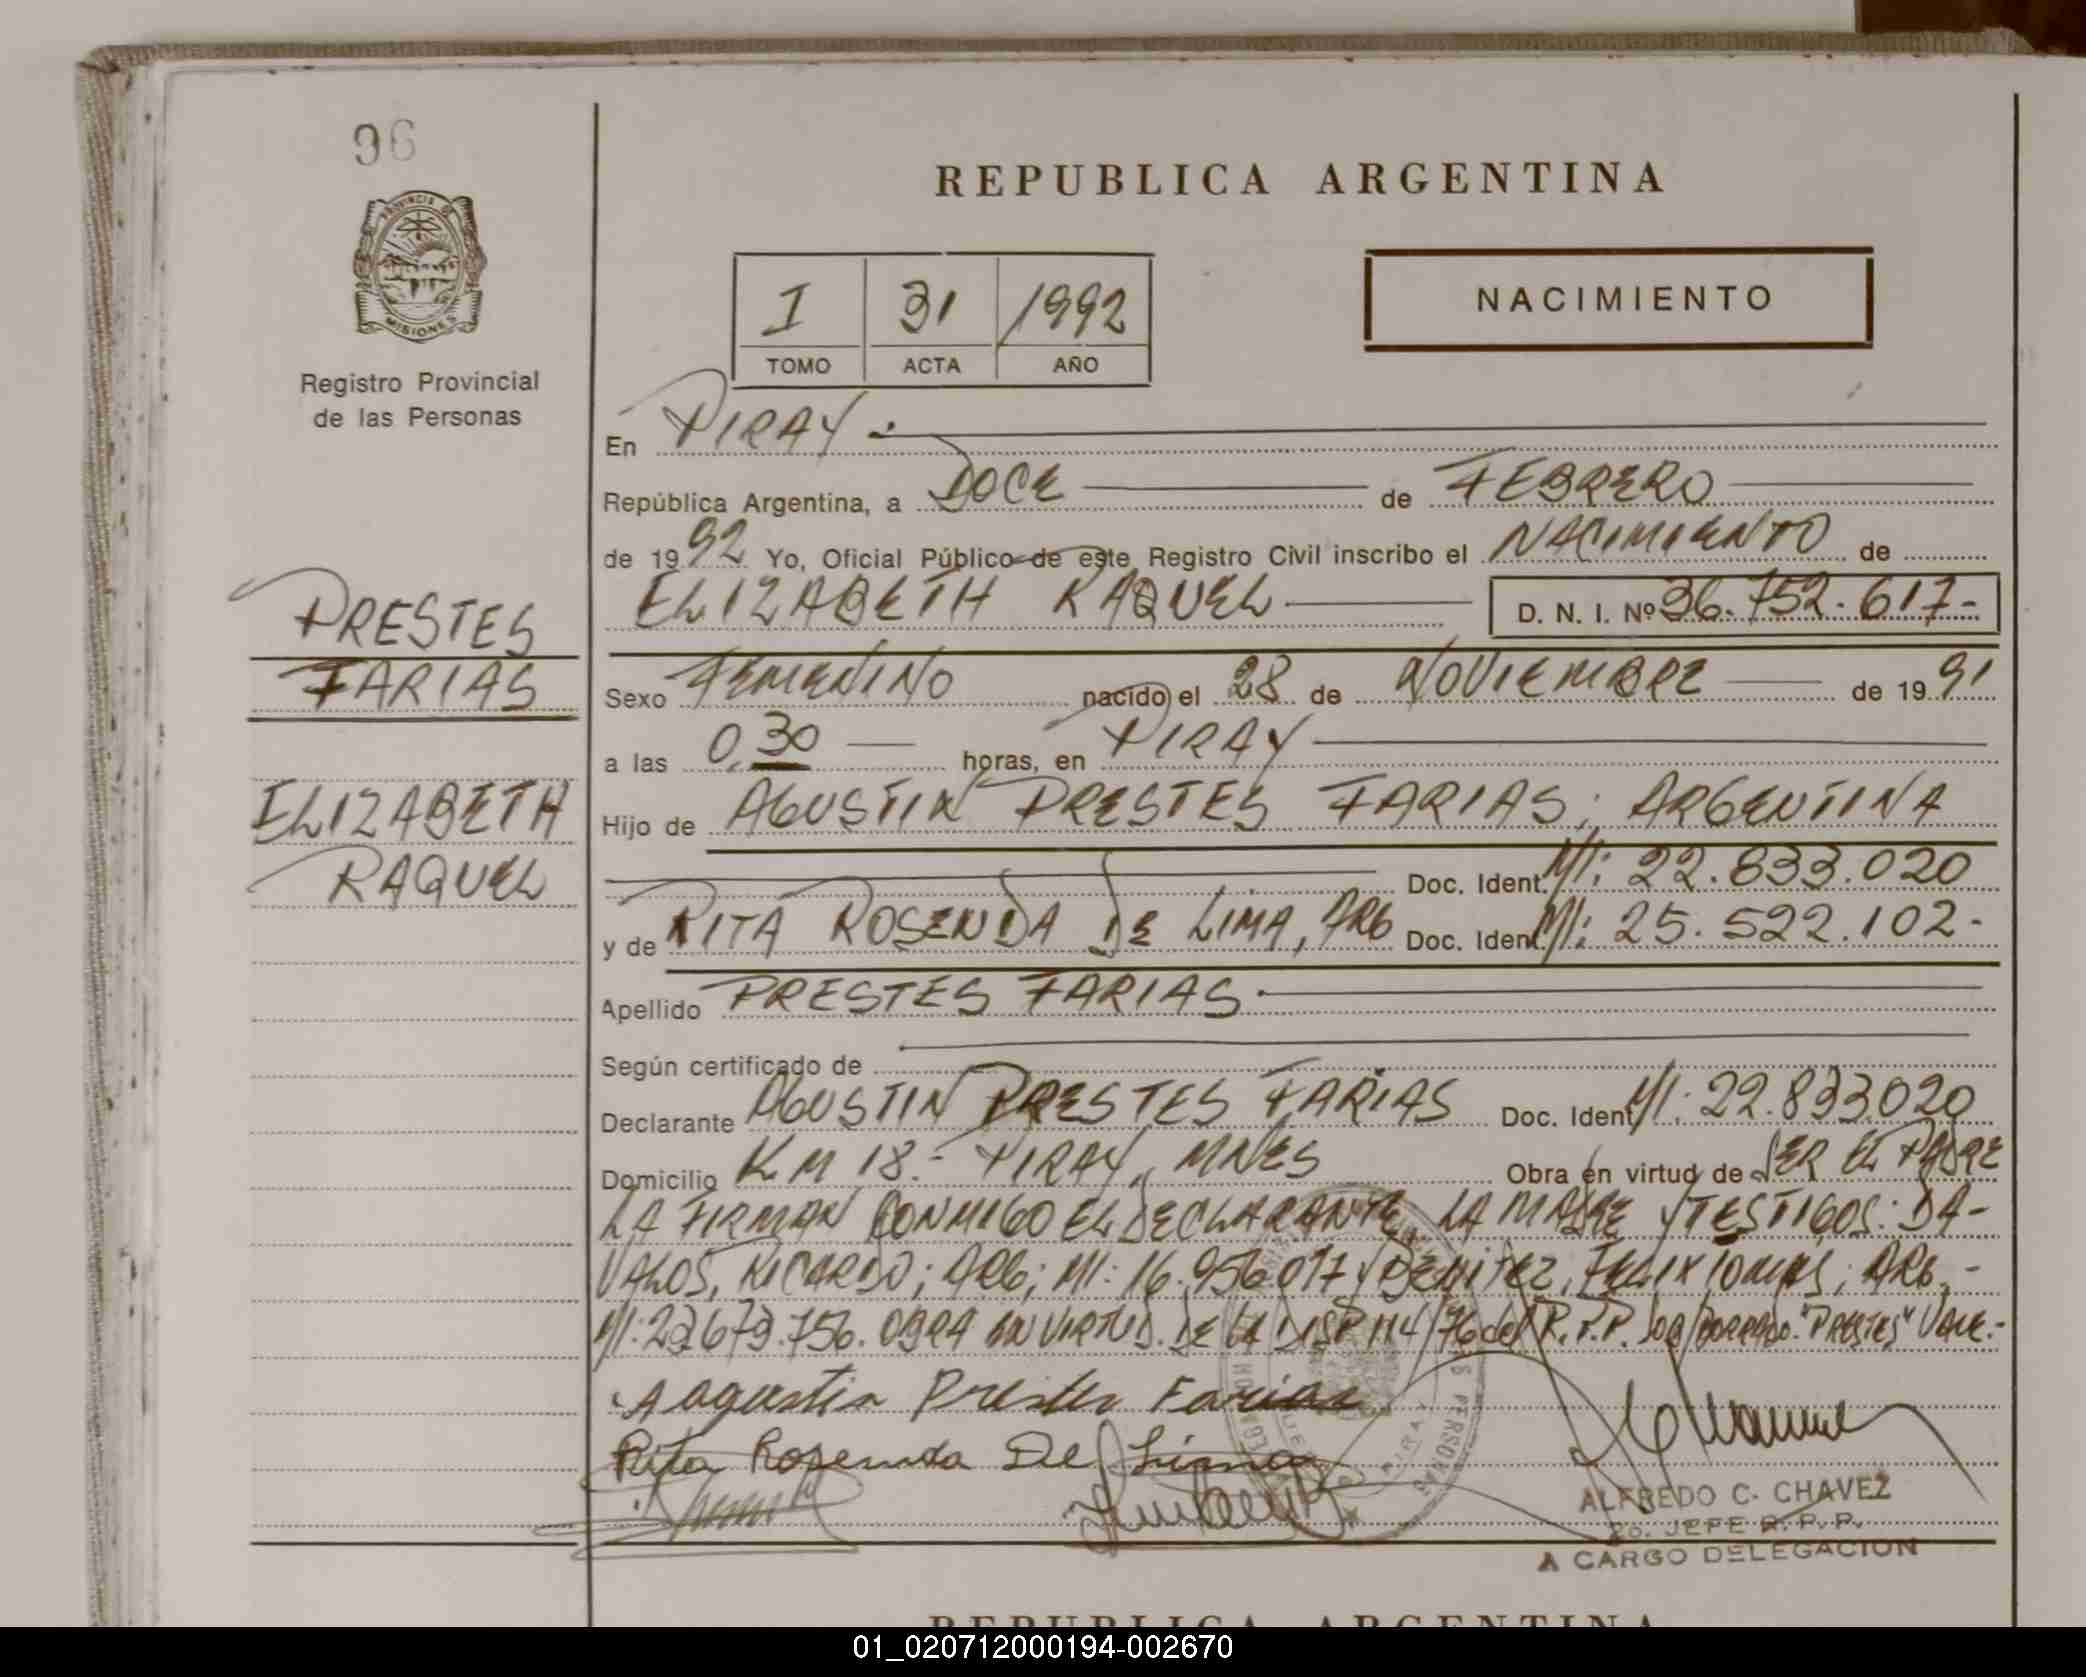 96
REPUBLICA ARGENTINA
PROVINCIA DE
MISIONES
Registro Provincial
de las Personas
I 31 1992
TOMO ACTA AÑO
NACIMIENTO
En PIRAY.-
República Argentina, a DOCE de FEBRERO
de 1992 Yo, Oficial Público de este Registro Civil inscribo el NACIMIENTO de
ELIZABETH RAQUEL D. N. I. Nº 36.752.617-
PRESTES
FARIAS
ELIZABETH
RAQUEL
Sexo FEMENINO nacido el 28 de NOVIEMBRE de 1991
a las 0,30 horas, en PIRAY
Hijo de AGUSTIN PRESTES FARIAS; ARGENTINA
Doc. Ident. MI: 22.833.020
y de RITA ROSENDA DE LIMA, ARG Doc. Ident. MI: 25.522.102-
Apellido PRESTES FARIAS.
Según certificado de
Declarante AGUSTIN PRESTES FARIAS Doc. Ident. MI: 22.833.020
Domicilio KM 18.- PIRAY, MNES Obra en virtud de SER EL PADRE
LA FIRMAN CONMIGO EL DECLARANTE, LA MADRE Y TESTIGOS: DA-
VALOS, RICARDO; ARG; MI: 16.956.017 Y BENITEZ, FELIX TOMAS; ARG.-
OBRA EN VIRTUD DE LA DISP 114/76 del R.P.P. "PRESTES" VALE.-
Aagustin Prestes Farias
Rita Rosenda De Lima
ALFREDO C. CHAVEZ
2o. JEFE R.P.P.
A CARGO DELEGACION
REPUBLICA ARGENTINA
01_020712000194-002670